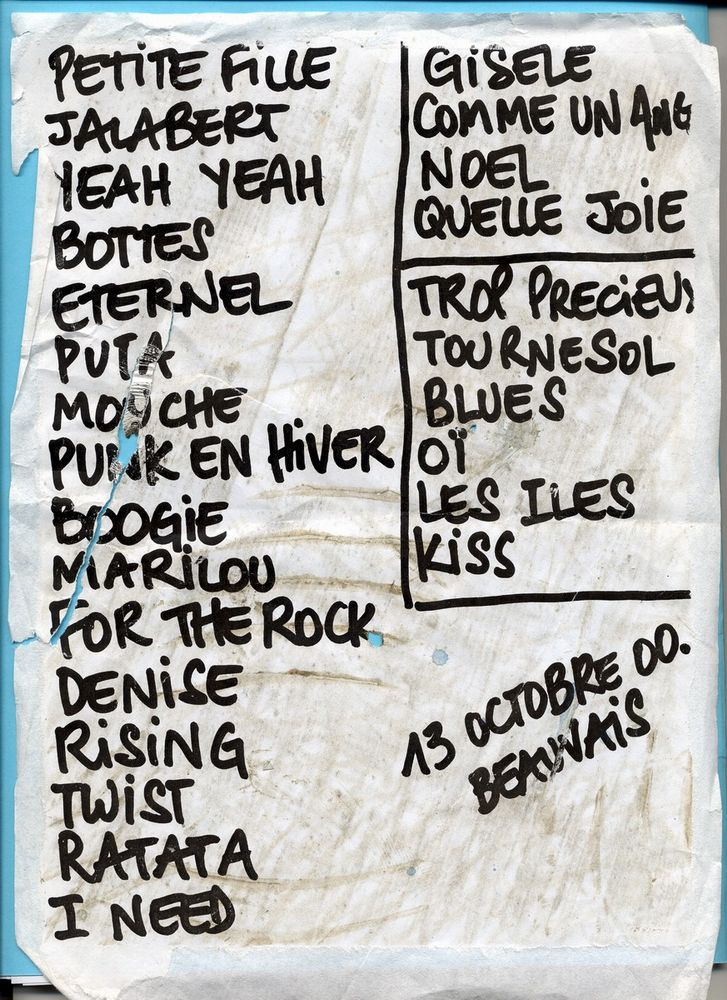 PETITE FILLE
JALABERT
YEAH YEAH
BOTTES
ETERNEL
PUTA
MOUCHE
PUNK EN HIVER
BOOGIE
MARILOU
FOR THE ROCK
DENISE
RISING
TWIST
RATATA
I NEED
GISELE
COMME UN ANG
NOEL
QUELLE JOIE
TROP PRECIEUX
TOURNESOL
BLUES
OÏ
LES ILES
KISS
13 OCTOBRE 00.
BEAUVAIS